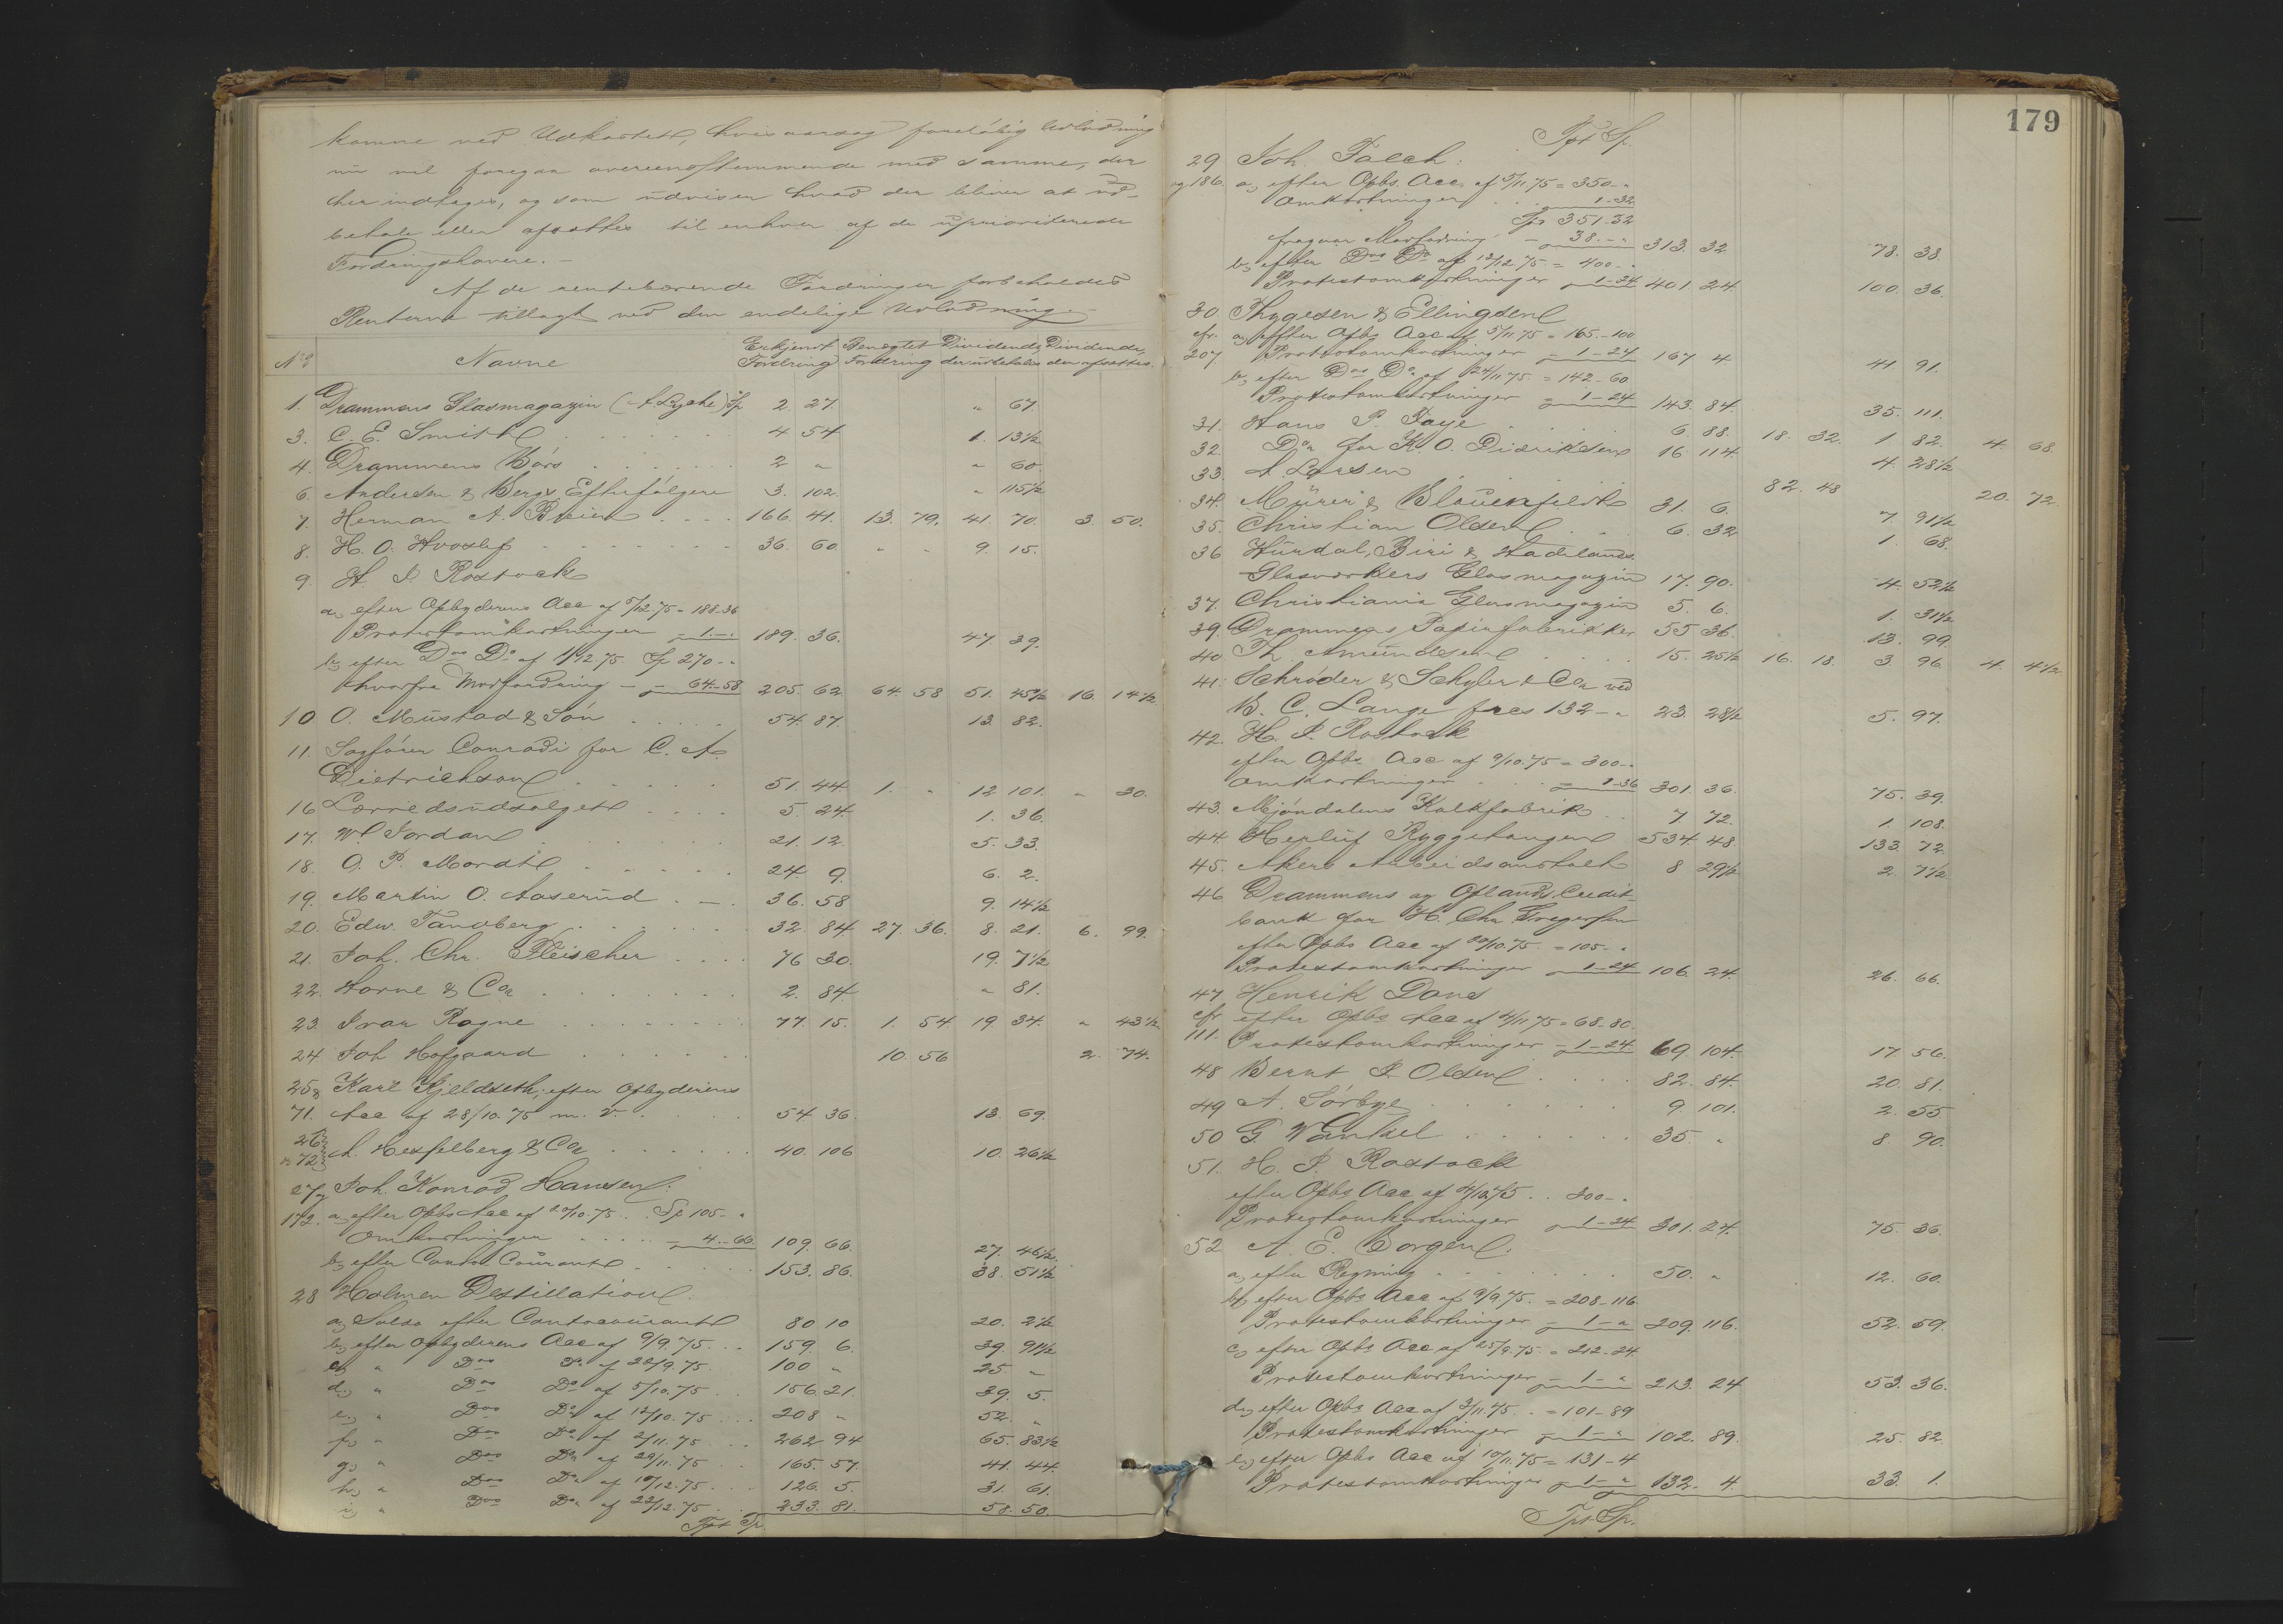 komme ved Udkastet, hvisaarsag foreløbig Udlodning
nu vil foregaa overeensstemmende med samme, der
her indtages, og som udviser hvad der bliver at ud-
betale eller afsættes til enhver af de upriorterede
Fordringshavere. -
Af de rentebærende Fordringer forbeholdes
Renterne tillagt ved den endelige Udlodning. -
No Navne Erkjendt Fordring Benegtet Fordring Dividende, der udbetales Dividende, der afsættes.
1. Drammens Glasmagazin (A. Lyche) Sp 2. 27. " 67.
3. C. E. Smith 4 54 1. 13½
4. Drammens Børs 2 " " 60.
6. Andersen & Bergs Efterfølgere 3. 102. " 115½
7. Herman A. Breien 166. 41. 13. 79. 41. 70. 3. 50.
8. H. O. Hvoslef 36. 60. " " 9. 15.
9. H. I. Rostock
a, efter Opbyderens Acc af 5/12 75 = 188.36
Protestomkostninger = 1. - " 189. 36. 47. 39.
b, efter Do Do af 1/12.75 Sp 270 - "
hvorfra Modfordring - = 64-58 205. 62. 64. 58 51. 45½ 16. 14½
10 O. Mustad & Søn 54. 87. 13. 82.
11. Sagfører Conradi for C. A.
Dietrichson 51. 44 1. " 12 101. " 30.
16 Lærredsudsalget 5. 24. 1. 36.
17. W. Jordan 21. 12. 5. 33.
18. O. P. Mordt 24 9. 6. 2.
19. Martin O. Aaserud 36. 58 9. 14½
20. Edw. Tandberg 32. 84 27. 36. 8. 21. 6. 99.
21. Joh. Chr. Fleischer 76 30. 19. 7½
22. Horne & Co 2. 84. " 81.
23. Ivar Rogne 77. 15. 1. 54. 19 34. " 43½
24 Joh Hofgaard 10. 56 2. 74.
25 & Karl Kjeldseth, efter Opbyderens
71. Acc af 28/10. 75 m. v. 54. 36. 13. 69.
26 & 72 A. Hexfelberg & Co 40. 106 10. 26½
27 & Joh. Konrad Hansen:
172. a, efter Opbs Acc af 20/10. 75 Sp 105 - "
Omkostninger = 4. - 66. 109. 66. 27. 46½
b, efter Conto Courant 153. 86. 38. 51½
28 Holmen Destillation.
a, Saldo efter Contocourant 80 10 20. 2½
b, efter Opbyderens Acc af 9/9. 75 159. 6. 39. 91½
c, " Do Do af 22/9. 75. 100 " 25 "
d, " Do Do af 5/10. 75 156. 21. 39. 5.
e, " Do Do af 12/10. 75 208 " 52. "
f, " Do Do af 2/11. 75 262 94 65. 83½
g, " Do Do af 20/11. 75 165. 57. 41. 44.
h, " Do Do af 10/12. 75 126. 5. 31. 61.
i, " Do Do af 22/12. 75 233. 81. 58. 50.
Tpt Sp.
179
Tpt Sp.
29 Joh. Falch:
og 186. a, efter Opbs. Acc. af 5/11. 75 = 350 - "
Omkostninger 1-32
Sp 351-32
fragaar Modfordring - 38. - " 313. 32 78. 38.
b, efter Do Do af 12/12. 75 = 400 - "
Protestomkostninger = 1-24 401. 24. 100. 36.
30. Thygesen & Ellingsen
cfr. a, efter Opbs Acc af 5/11. 75 = 165. - 100
207 Protestomkostninger = 1-24 167 4. 41. 91.
b, efter Do Do af 24/11. 75. = 142 - 60.
Protestomkostninger = 1-24 143. 84. 35. 111.
31. Hans P. Faye 6. 88. 18. 32. 1. 82. 4. 68.
32. Do for K. O. Didriksen 16 114. 4. 28½
33. A. Larsen 82. 48 20. 72.
34. Mürer & Blauenfeldt 31. 6. 7. 91½
35. Christian Olsen 6. 32 1. 68.
36 Hurdal, Biri & Hadelands
Glasværkers Glasmagazin 17. 90. 4. 52½
37. Christiania Glasmagazin 5. 6. 1. 31½
39. Drammens Papirfabrikker 55 36. 13. 99.
40 Th. Amundsen 15. 25½ 16. 18. 3. 96. 4. 4½
41. Schrøder & Schyler & Co ved
B. C. Lange frcs 132 - " 23. 28½ 5. 97.
42. H. I. Rostock
efter Opbs Acc af 9/10. 75 = 300 - "
Omkostninger = 1-36 301. 36. 75. 39.
43. Mjøndalens Kalkfabrik 7 72. 1. 108.
44. Herluf Ryggehaugen 534. 48. 133. 72
45. Akers Arbeidsanstalt 8 29½ 2. 7½
46 Drammens og Oplands Credit-
bank for H. Chr. Gregersen
efter Opbs Acc af 20/10. 75. = 105 - "
Protestomkostninger = 1-24 106. 24. 26. 66.
47 Henrik Dons
cfr. efter Opbs Acc af 4/11 75 = 68-80.
111. Protestomkostninger = 1-24. 69. 104. 17. 56.
48 Bernt I. Olsen 82. 84. 20. 81.
49 A. Sørbye 9. 101. 2. 55.
50 G. Wankel 35. " 8. 90.
51. H. I. Rostock
efter Opbs Acc af 4/12 75 300 - "
Protestomkostninger = 1-24 301. 24. 75. 36.
52. A. E. Borgen.
a, efter Regning 50. " 12. 60.
b, efter Opbs Acc af 9/9. 75. = 208-116.
Protestomkostninger = 1 - " 209. 116. 52. 59.
c, efter Opbs Acc af 25/9. 75. = 212-24.
Protestomkostninger = 1 - " 213. 24 53. 36.
d, efter Opbs Acc af 3/11. 75 = 101-89
Protestomkostninger = 1 - " 102. 89. 25. 82.
e, efter Opbs Acc af 10/11. 75 = 131-4
Protestomkostninger = 1 - " 132. 4. 33. 1.
Tpt Sp.